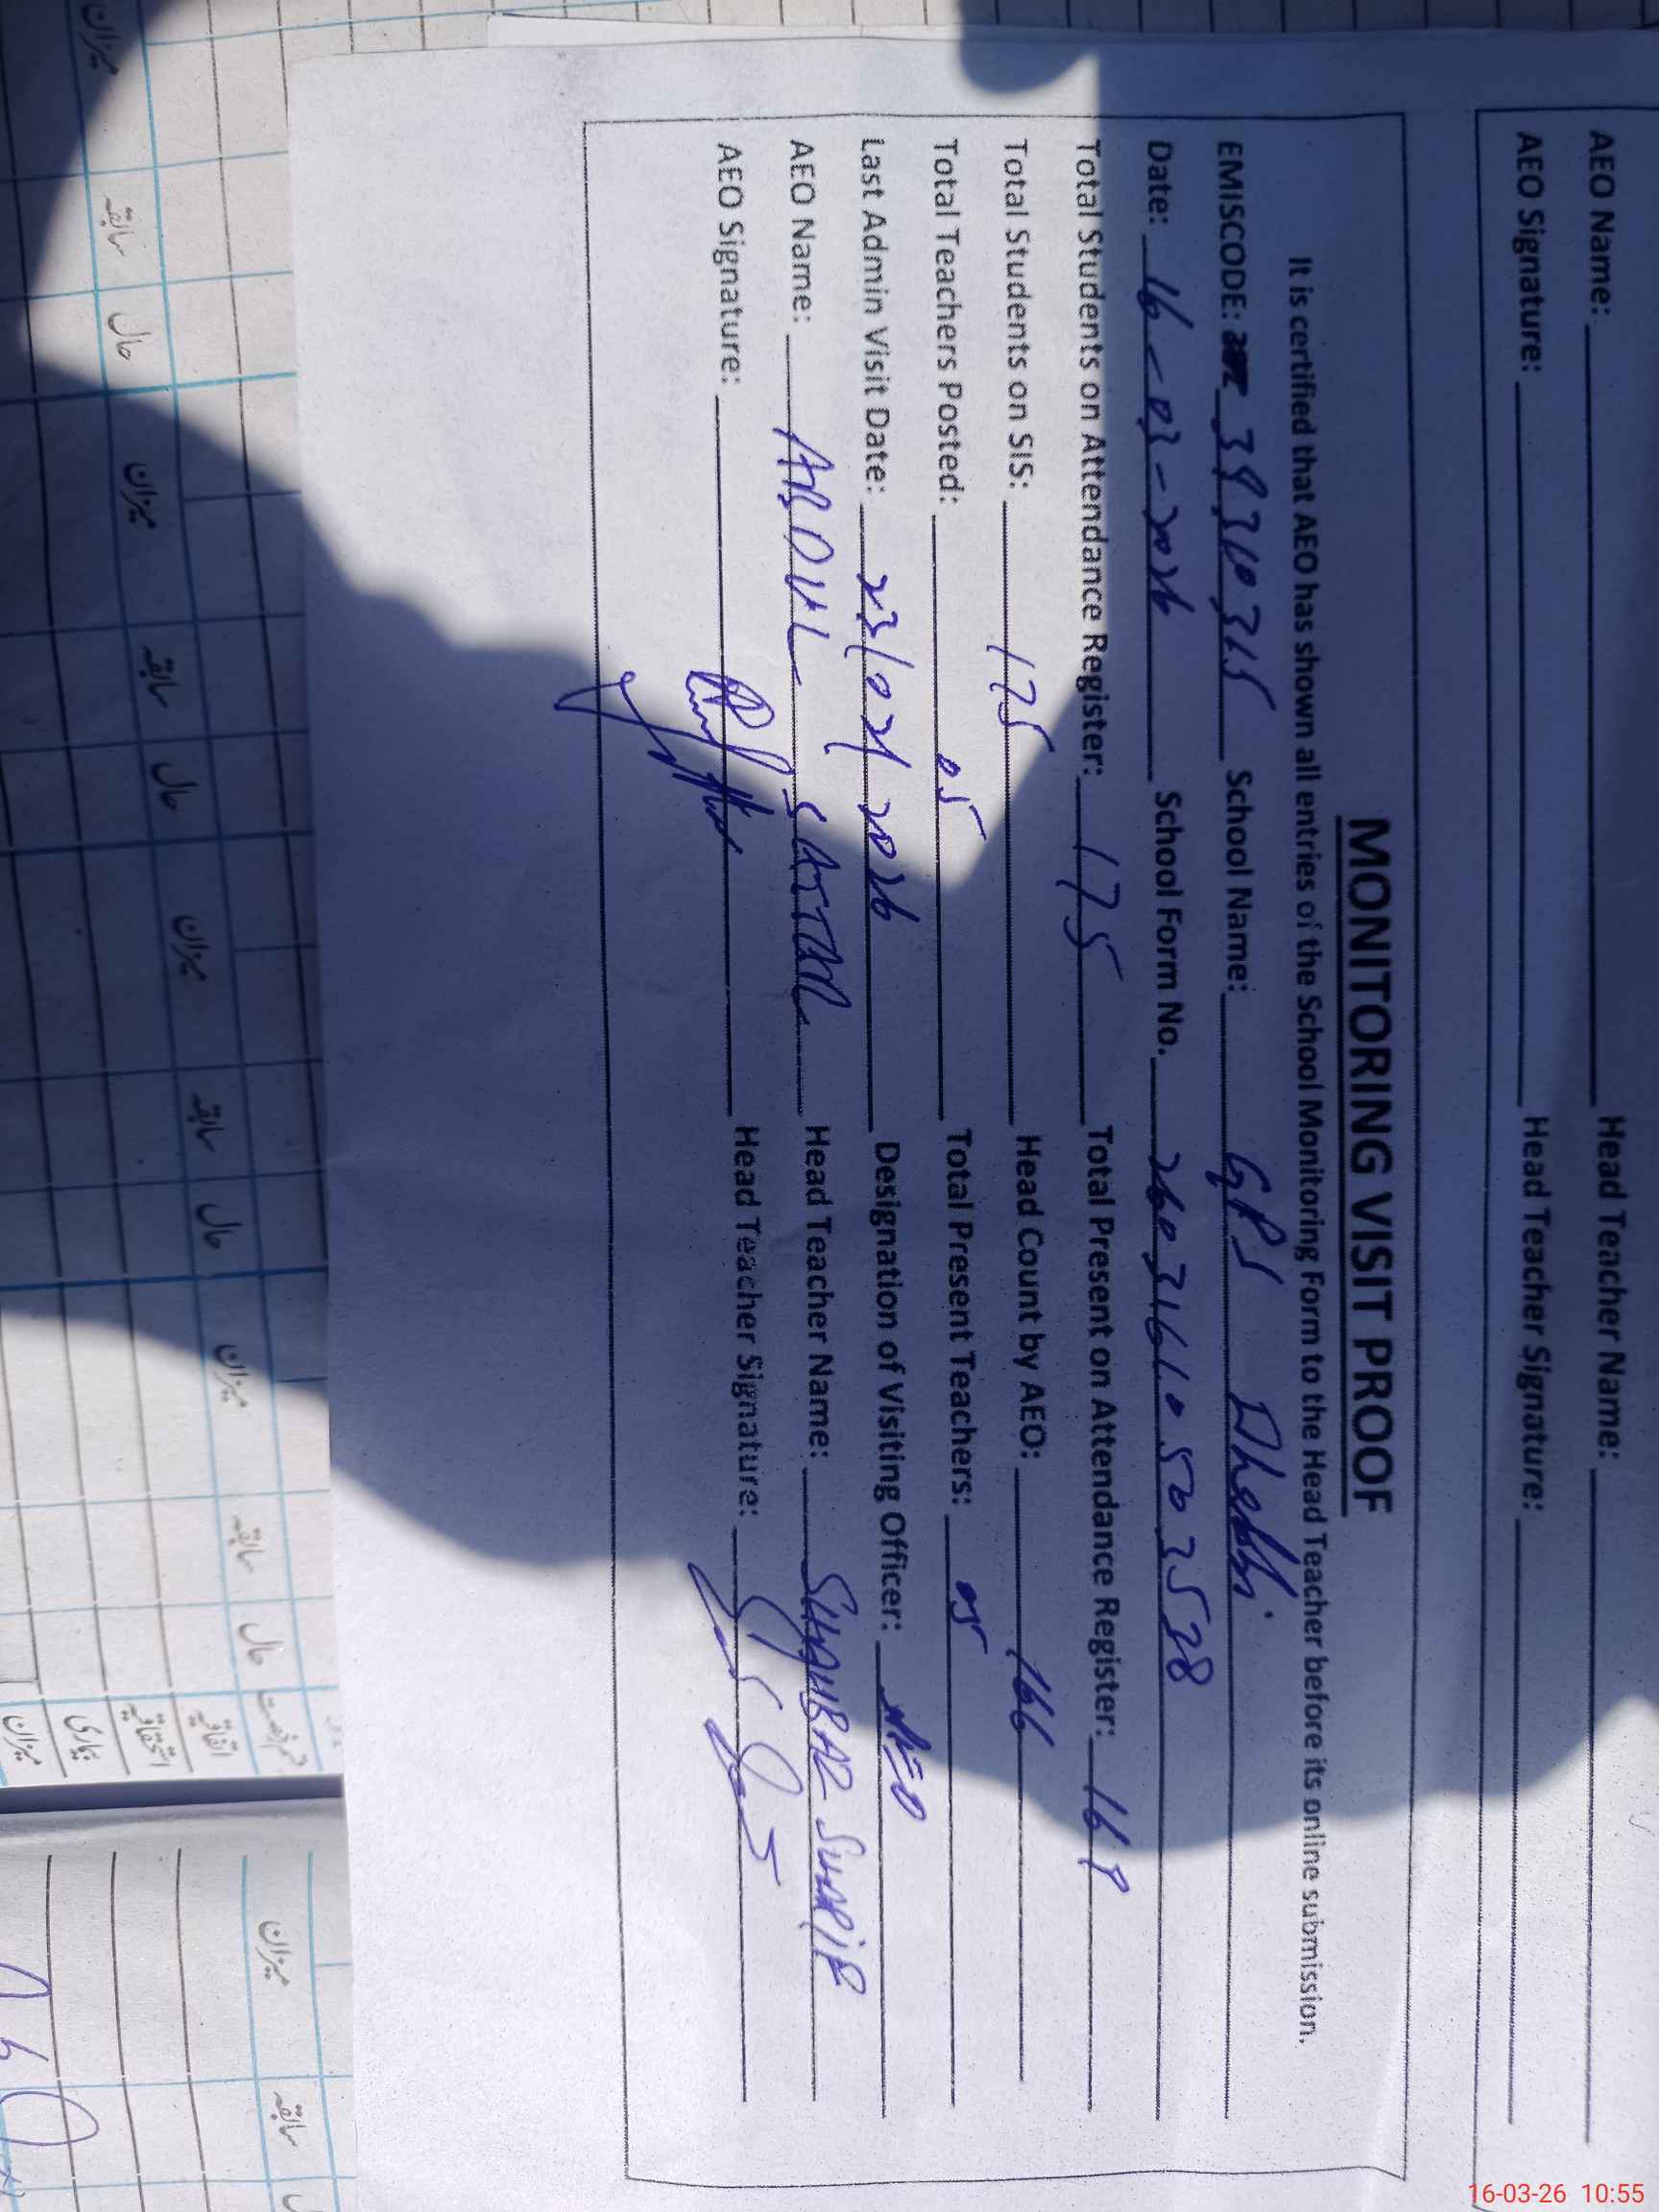 AEO Name: Head Teacher Name:
AEO Signature: Head Teacher Signature:
MONITORING VISIT PROOF
It is certified that AEO has shown all entries of the School Monitoring Form to the Head Teacher before its online submission.
EMISCODE: 39310315 School Name: GPS Dhebbi
Date: 16-03-2026 School Form No. 2603161050
Total Students on Attendance Register: 175 Total Present on Attendance Register: 169
Total Students on SIS: 175 Head Count by AEO: 166
Total Teachers Posted: 05 Total Present Teachers: 05
Last Admin Visit Date: 23/02/2026 Designation of Visiting Officer: AEO
AEO Name: ABDUL SATTAR Head Teacher Name: SHAHBAZ SHARIF
AEO Signature: Head Teacher Signature:
میزان سابقہ حال میزان سابقہ حال میزان سابقہ حال میزان سابقہ حال
اتفاقیہ
استحقاقیہ
بیماری
میزان
میزان سابقہ
16-03-26 10:55